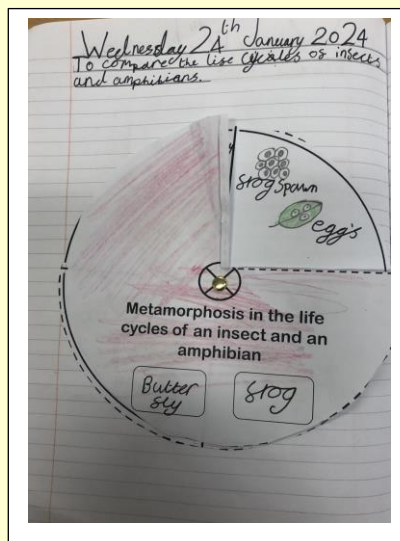 Wednesday 24th January 2024
To compare the life cycles of insects
and amphibians.
frogspawn
eggs
Metamorphosis in the life
cycles of an insect and an
amphibian
Butter
fly
frog